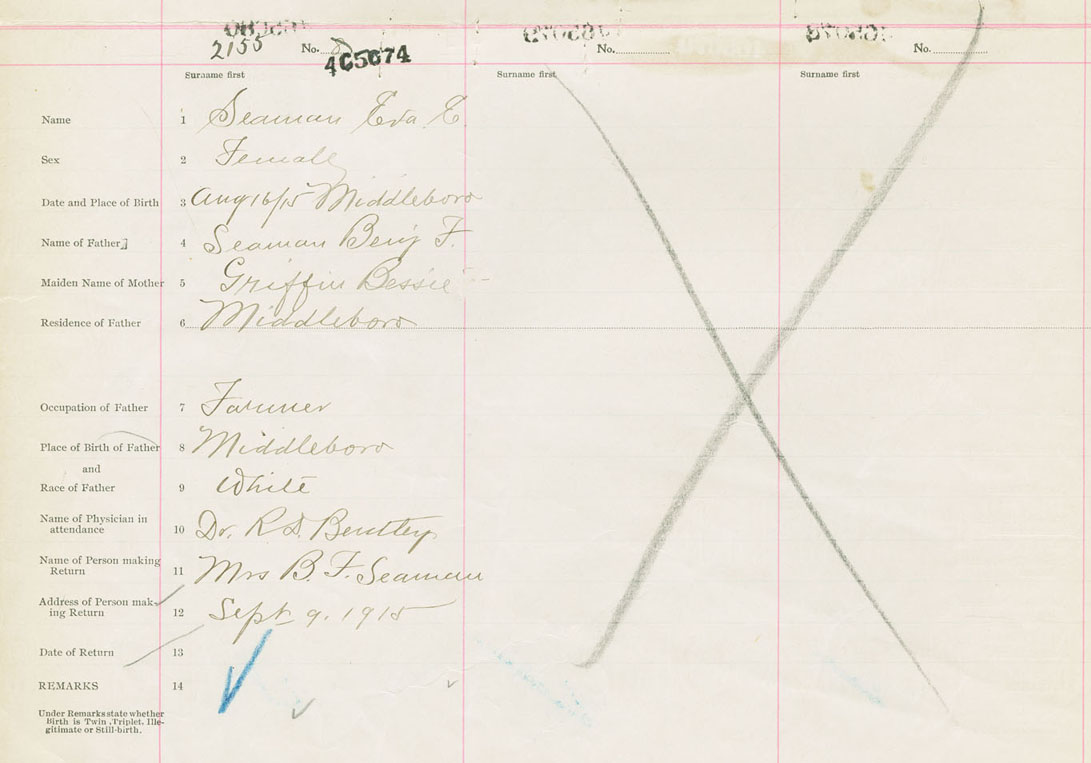 2155 No. No. No.
405674
Surname first Surname first Surname first
Name 1 Seaman Eva E.
Sex 2 Female
Date and Place of Birth 3 Aug 16/15 Middleboro
Name of Father 4 Seaman Benj F.
Maiden Name of Mother 5 Griffin Bessie
Residence of Father 6 Middleboro
Occupation of Father 7 Farmer
Place of Birth of Father 8 Middleboro
and
Race of Father 9 White
Name of Physician in
attendance 10 Dr. R. D. Bentley
Name of Person making
Return 11 Mrs B. F. Seaman
Address of Person mak-
ing Return 12 Sept 9. 1915
Date of Return 13
REMARKS 14
Under Remarks state whether
Birth is Twin, Triplet, Ille-
gitimate or Still-birth.